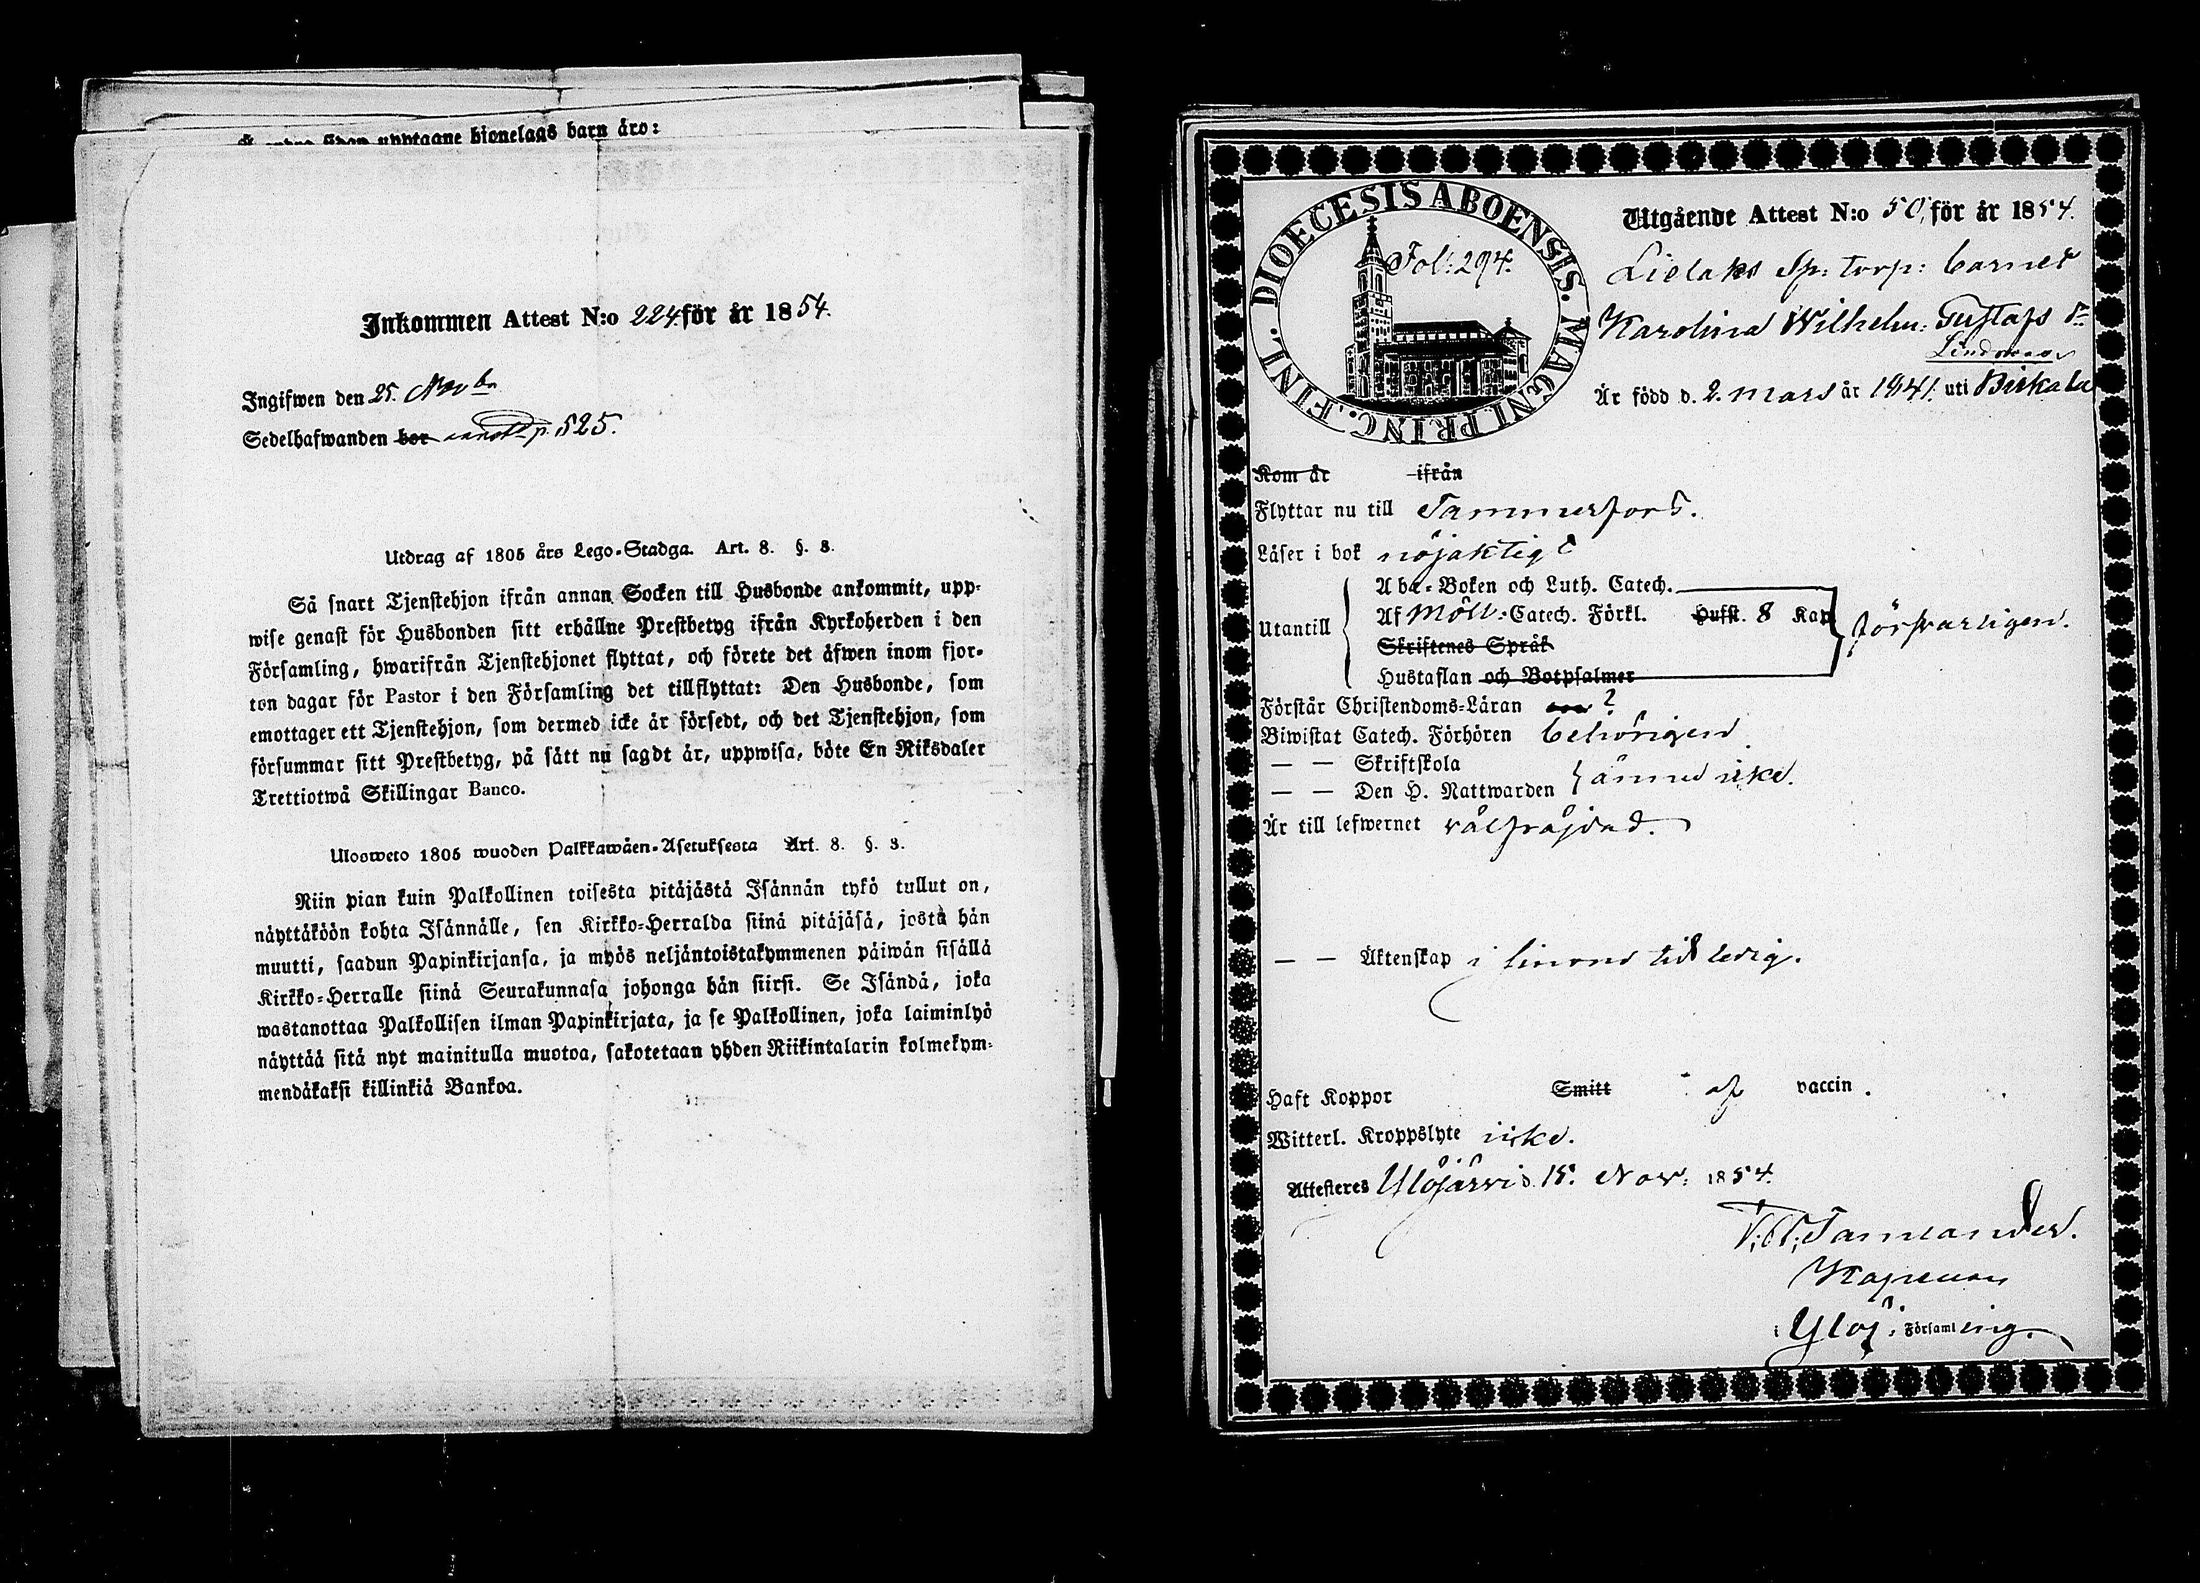 upptagne bionelags barn äro:
Inkommen Attest N:o 224 för år 1854.
Ingifwen den 25. Novbr
Sedelhafwanden bor p. 525.
Utdrag af 1805 års Lego-Stadga. Art. 8. §. 3.
Så snart Tjenstehjon ifrån annan Socken till Husbonde ankommit, upp-
wise genast för Husbonden sitt erhållne Prestbetyg ifrån Kyrkoherden i den
Församling, hwarifrån Tjenstehjonet flyttat, och förete det äfwen inom fjor-
ton dagar för Pastor i den Församling det tillflyttat: Den Husbonde, som
emottager ett Tjenstehjon, som dermed icke är försedt, och det Tjenstehjon, som
försummar sitt Prestbetyg, på sätt nu sagdt är, uppwisa, böte En Riksdaler
Trettiotwå Skillingar Banco.
Ulosweto 1805 wuoden Palkkawäen-Asetuksesta Art. 8. §. 3.
Niin pian kuin Palkollinen toisesta pitäjästä Isännän tykö tullut on,
näyttäköön kohta Isännälle, sen Kirkko-Herralda siinä pitäjäsä, josta hän
muutti, saadun Papinkirjansa, ja myös neljäntoistakymmenen päiwän sisällä
Kirkko-Herralle siinä Seurakunnasa johonga hän siirsi. Se Isändä, joka
wastanottaa Palkollisen ilman Papinkirjata, ja se Palkollinen, joka laiminlyö
näyttää sitä nyt mainitulla muotoa, sakotetaan yhden Riikintalarin kolmekym-
mendäkaksi killinkiä Bankoa.
DIOECESIS ABOENSIS. MAGNI PRINC. FINL.
Fol: 294.
Utgående Attest N:o 50, för år 1854.
Lielaks Sp: torp: barnet
Karolina Wilhelm: Gustafs dr
Lindroos
Är född d. 2. mars år 1841. uti Birkala
Kom år ifrån
Flyttar nu till Tammerfors.
Läser i bok nöjaktigt
Utantill
Abc-Boken och Luth. Catech.
Af Möll: Catech. Förkl. Hufst. 8 Kap
Skriftenes Språk
Hustaflan och Botpsalmer
försvarligen.
Förstår Christendoms-Läran ?
Biwistat Catech. Förhören behörigen
— — Skriftskola
— — Den H. Nattwarden
ännu icke.
Är till lefwernet välfräjdad.
— — Äktenskap i sinom tid ledig.
Haft Koppor Smitt af vaccin.
Witterl. Kroppslyte icke.
Attesteres Ylöjärvi d. 15. Nov: 1854.
Tamlander.
Kapellan
i Ylöj: Församling.